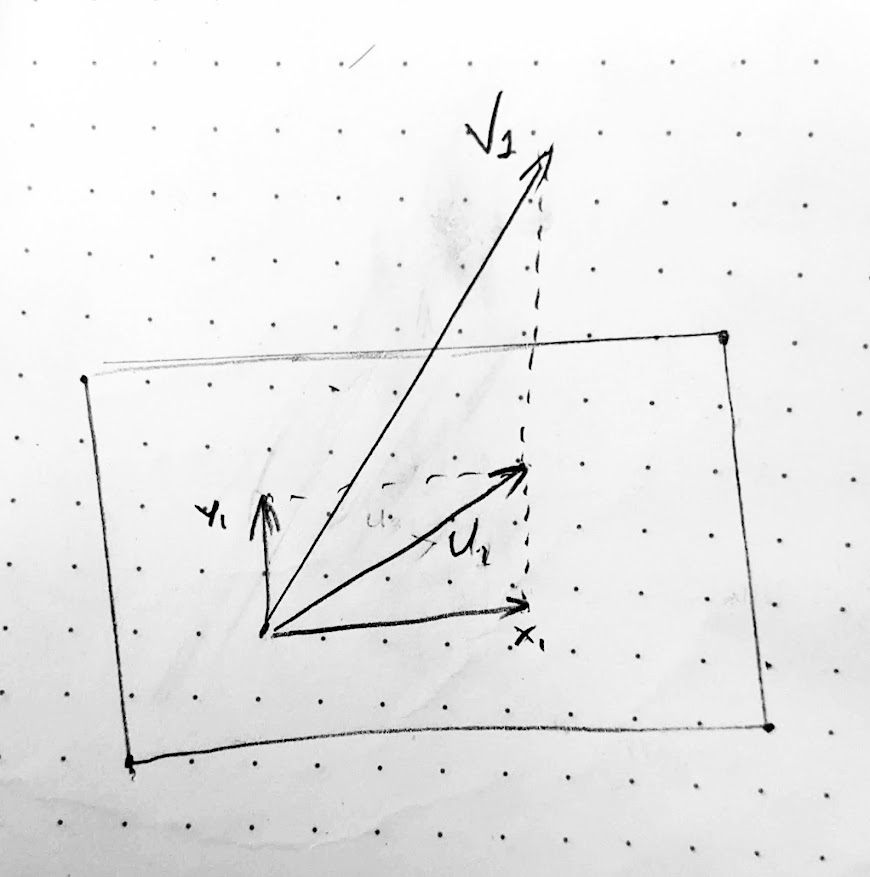 V₁
y₁
U₁
x₁